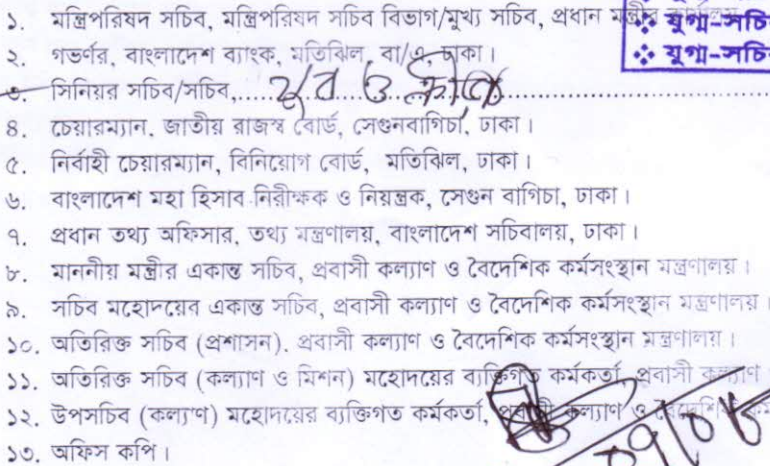 ১. মন্ত্রিপরিষদ সচিব, মন্ত্রিপরিষদ সচিব বিভাগ/মুখ্য সচিব, প্রধান মন্ত্রীর কার্যালয়
❖ যুগ্ম-সচিব
❖ যুগ্ম-সচিব
২. গভর্ণর, বাংলাদেশ ব্যাংক, মতিঝিল, বা/এ, ঢাকা।
৩. সিনিয়র সচিব/সচিব,..... যুব ও ক্রীড়া .....
৪. চেয়ারম্যান, জাতীয় রাজস্ব বোর্ড, সেগুনবাগিচা, ঢাকা।
৫. নির্বাহী চেয়ারম্যান, বিনিয়োগ বোর্ড, মতিঝিল, ঢাকা।
৬. বাংলাদেশ মহা হিসাব নিরীক্ষক ও নিয়ন্ত্রক, সেগুন বাগিচা, ঢাকা।
৭. প্রধান তথ্য অফিসার, তথ্য মন্ত্রণালয়, বাংলাদেশ সচিবালয়, ঢাকা।
৮. মাননীয় মন্ত্রীর একান্ত সচিব, প্রবাসী কল্যাণ ও বৈদেশিক কর্মসংস্থান মন্ত্রণালয়।
৯. সচিব মহোদয়ের একান্ত সচিব, প্রবাসী কল্যাণ ও বৈদেশিক কর্মসংস্থান মন্ত্রণালয়।
১০. অতিরিক্ত সচিব (প্রশাসন). প্রবাসী কল্যাণ ও বৈদেশিক কর্মসংস্থান মন্ত্রণালয়।
১১. অতিরিক্ত সচিব (কল্যাণ ও মিশন) মহোদয়ের ব্যক্তিগত কর্মকর্তা, প্রবাসী কল্যাণ
১২. উপসচিব (কল্যাণ) মহোদয়ের ব্যক্তিগত কর্মকর্তা, প্রবাসী কল্যাণ ও বৈদেশিক
১৩. অফিস কপি।